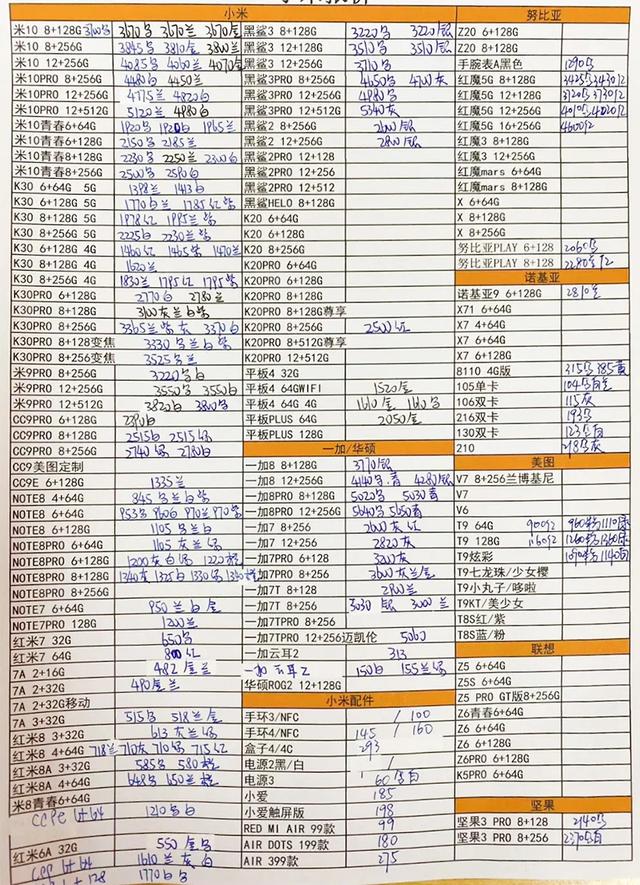 小米
米10 8+128G 3670兰 3670金
米10 8+256G 3845 3810金 3800兰
米10 12+256G 4085 4060兰 4070金
米10PRO 8+256G 4480白 4450兰
米10PRO 12+256G 4775兰 4820白
米10PRO 12+512G 5120兰 4980白
米10青春6+64G 1920 1920白 1965兰
米10青春6+128G 2150 2185兰
米10青春8+128G 2230 2250兰 2300白
米10青春8+256G 2500 2590白
K30 6+64G 5G 1398兰 1413白
K30 6+128G 5G 1770白兰 1785红紫
K30 8+128G 5G 1978红 1995兰紫
K30 8+256G 5G 2225白 2230兰紫
K30 6+128G 4G 1460红 1465紫 1470兰
K30 8+128G 4G 1620兰
K30 8+256G 4G 1830兰 1795红 1795紫
K30PRO 6+128G 2770白 2780兰
K30PRO 8+128G 3100灰兰白紫
K30PRO 8+256G 3365兰紫灰 3370白
K30PRO 8+128变焦 3330兰白紫
K30PRO 8+256变焦 3525兰
米9PRO 8+256G 3220白
米9PRO 12+256G 3550 3550白
米9PRO 12+512G 3820白 3830
CC9PRO 6+128G 2390白
CC9PRO 8+128G 2515白 2515
CC9PRO 8+256G 2740 2780白
CC9美图定制
CC9E 6+128G 1335兰
NOTE8 4+64G 845兰白
NOTE8 6+64G 953 960白 970兰
NOTE8 6+128G 1105兰白
NOTE8PRO 6+64G 1105灰兰
NOTE8PRO 6+128G 1200灰白 1220橙
NOTE8PRO 8+128G 1340灰 1325白 1330
NOTE8PRO 8+256G
NOTE7 6+64G 950兰白金
NOTE7PRO 128G 1200兰
红米7 32G 650
红米7 64G 红
7A 2+16G 482金兰
7A 2+32G 490金兰
7A 2+32G移动
7A 3+32G 515 518兰金
红米8 3+32G 613灰兰
红米8 4+64G 718兰 710灰 710 715红
红米8A 3+32G 585 580橙
红米8A 4+64G 648 650兰橙
米8青春6+64G
6+64 1210白
红米6A 32G 550金
6+64 1610兰灰白
+128 1770白
黑鲨3 8+128G 3220 3220银
黑鲨3 12+128G 3510 3510银
黑鲨3 12+256G 3710
黑鲨3PRO 8+256G 4650 4700灰
黑鲨3PRO 12+256G 4980
黑鲨3PRO 12+512G 5340灰
黑鲨2 8+256G 2600银
黑鲨2 12+256G 2800银
黑鲨2PRO 12+128
黑鲨2PRO 12+256
黑鲨2PRO 12+512
黑鲨HELO 8+128G
K20 6+64G
K20 6+128G
K20 8+256G
K20PRO 6+64G
K20PRO 6+128G
K20PRO 8+128G
K20PRO 8+128G尊享
K20PRO 8+256G 2500红
K20PRO 8+256G尊享
K20PRO 12+512G
平板4 32G
平板4 64GWIFI 1520金
平板4 64G 4G 1610金
平板PLUS 64G 2050金
平板PLUS 128G
一加/华硕
一加8 8+128G 3770银
一加8 12+256G 4140青 4280银
一加8PRO 8+128G 5020 5030青
一加8PRO 12+256G 5640 5650青
一加7 8+256G 2600灰红
一加7 12+256G 2820灰
一加7PRO 6+128 3200灰
一加7PRO 8+256 3600灰兰金
一加7T 8+128G 2900兰
一加7T 8+256G 3030银 3000兰
一加7TPRO 8+256
一加7TPRO 12+256迈凯伦 5060
一加云耳2 313
一加 云耳Z 150白 155兰
华硕ROG2 12+128G
小米配件
手环3/NFC / 100
手环4/NFC 145 / 160
盒子4/4C 293 /
电源2黑/白 /
电源3 60白
小爱 185
小爱触屏版 198
RED MI AIR 99款 99
AIR DOTS 199款 180
AIR 399款 275
努比亚
Z20 6+128G
Z20 8+128G
手腕表A黑色 1290
红魔5G 8+128G 3425 3430红
红魔5G 12+128G 3720 3730红
红魔5G 12+256G 4010 4020红
红魔5G 16+256G 4600红
红魔3 8+128G
红魔3 12+256G
红魔mars 6+64G
红魔mars 8+128G
X 6+64G
X 8+128G
X 8+256G
努比亚PLAY 6+128 2060
努比亚PLAY 8+128 2280红
诺基亚
诺基亚9 6+128G 2810兰
X71 6+64G
X7 4+64G
X7 6+64G
X7 6+128G
8110 4G版 315 385黄
105单卡 104白兰
106双卡 115灰
216双卡 193
130双卡 123白
210 218灰
美图
V7 8+256兰博基尼
V7
V6
T9 64G 900红 960粉 1110
T9 128G 1160红 1260粉 1360
T9炫彩 1090粉 1140白
T9七龙珠/少女樱
T9小丸子/哆啦
T9KT/美少女
T8S红/紫
T8S蓝/粉
联想
Z5 6+64G
Z5S 6+64G
Z5 PRO GT版8+256G
Z6青春6+64G
Z6 6+64G
Z6 6+128G
Z6PRO 6+128G
K5PRO 6+64G
坚果
坚果3 PRO 8+128 2140
坚果3 PRO 8+256 2370白